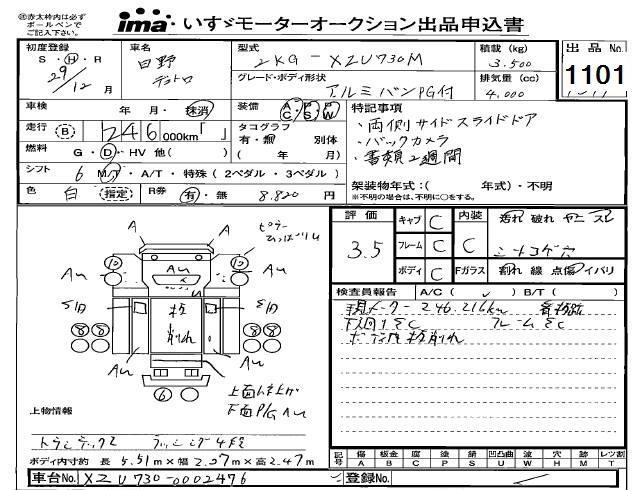 ㊟赤太枠内は必ず
ボールペンで
ご記入下さい。
ima いすゞモーターオークション出品申込書
初度登録 S・H・R 29/12月
車名 日野 デュトロ
型式 2KG-XZU730M
グレード・ボディ形状 アルミバンPG付
積載 (kg) 3.500
排気量 (cc) 4.000
出品No. 1101
車検 年 月・抹消
装備 AC PS PW
走行 B 246,000km「 」
タコグラフ 有・無 別体 ( 年 月)
燃料 G・D・HV 他( )
シフト 6 MT・A/T・特殊(2ペダル・3ペダル)
色 白 指定 R券 有・無 8.820円
特記事項
・両側サイドスライドドア
・バックカメラ
・書類2週間
架装物年式:( 年式)・不明
※不明の場合は、不明に〇をする。
評価 3.5
キャブ C
フレーム C
ボディ C
内装 C
Fガラス
汚れ 破れ ヤニ スレ
シート コゲ穴
割れ 線 点傷 イバリ
検査員報告 A/C( ) B/T( )
246.216km
下回りSC フレームSC
ボディ内板削れ
A
A
Au
Au
Au
板削れ
Au
Au
⑩
⑩
⑧⑧
⑧⑧
⑥
上物情報
下面P/G Au
ラッシング4段
ボディ内寸約 長 5.51m×幅 2.07m×高 2.47m
記号 傷 A 板金 B 腐 C 塗 P 錆 S 凹凸曲 U 波 W 穴 H 歪 M レツ割 T
車台No. XZU730-0002476
登録No.